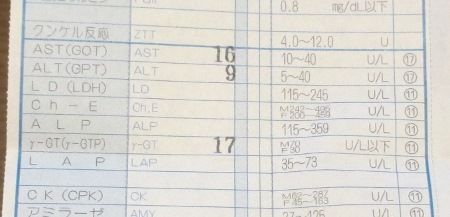 0.8 mg/dL以下
クンケル反応 ZTT 4.0～12.0 U
AST(GOT) AST 16 10～40 U/L ⑰
ALT(GPT) ALT 9 5～40 U/L ⑰
LD(LDH) LD 115～245 U/L ⑪
Ch-E Ch.E M242～495 F200～459 U/L ⑪
ALP ALP 115～359 U/L ⑪
γ-GT(γ-GTP) γ-GT 17 U/L以下 ⑪
LAP LAP 35～73 U/L ⑪
CK(CPK) CK M62～287 F45～163 U/L ⑪
アミラーゼ AMY